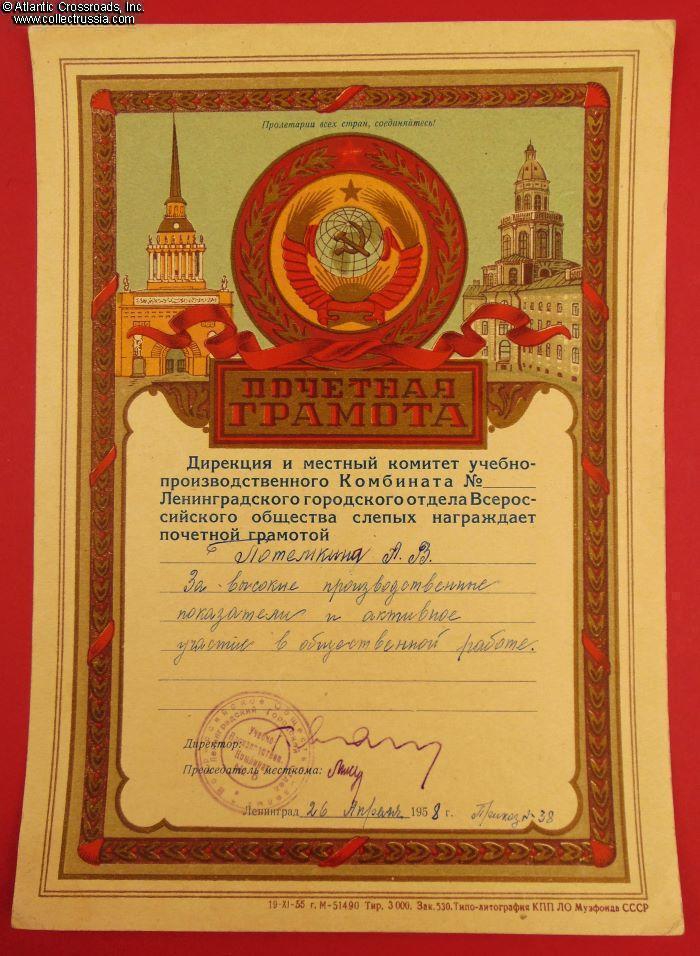 © Atlantic Crossroads, Inc.
www.collectrussia.com
Пролетарии всех стран, соединяйтесь!
ПОЧЕТНАЯ
ГРАМОТА
Дирекция и местный комитет учебно-
производственного Комбината №
Ленинградского городского отдела Всерос-
сийского общества слепых награждает
почетной грамотой
Потемкина А. В.
За высокие производственные
показатели и активное
участие в общественной работе.
Директор:
Председатель месткома:
Ленинград 26 Апреля 1958 г. Приказ № 38
19-XI-55 г. М-51490 Тир. 3000. Зак. 530. Типо-литография КПП ЛО Музфонда СССР